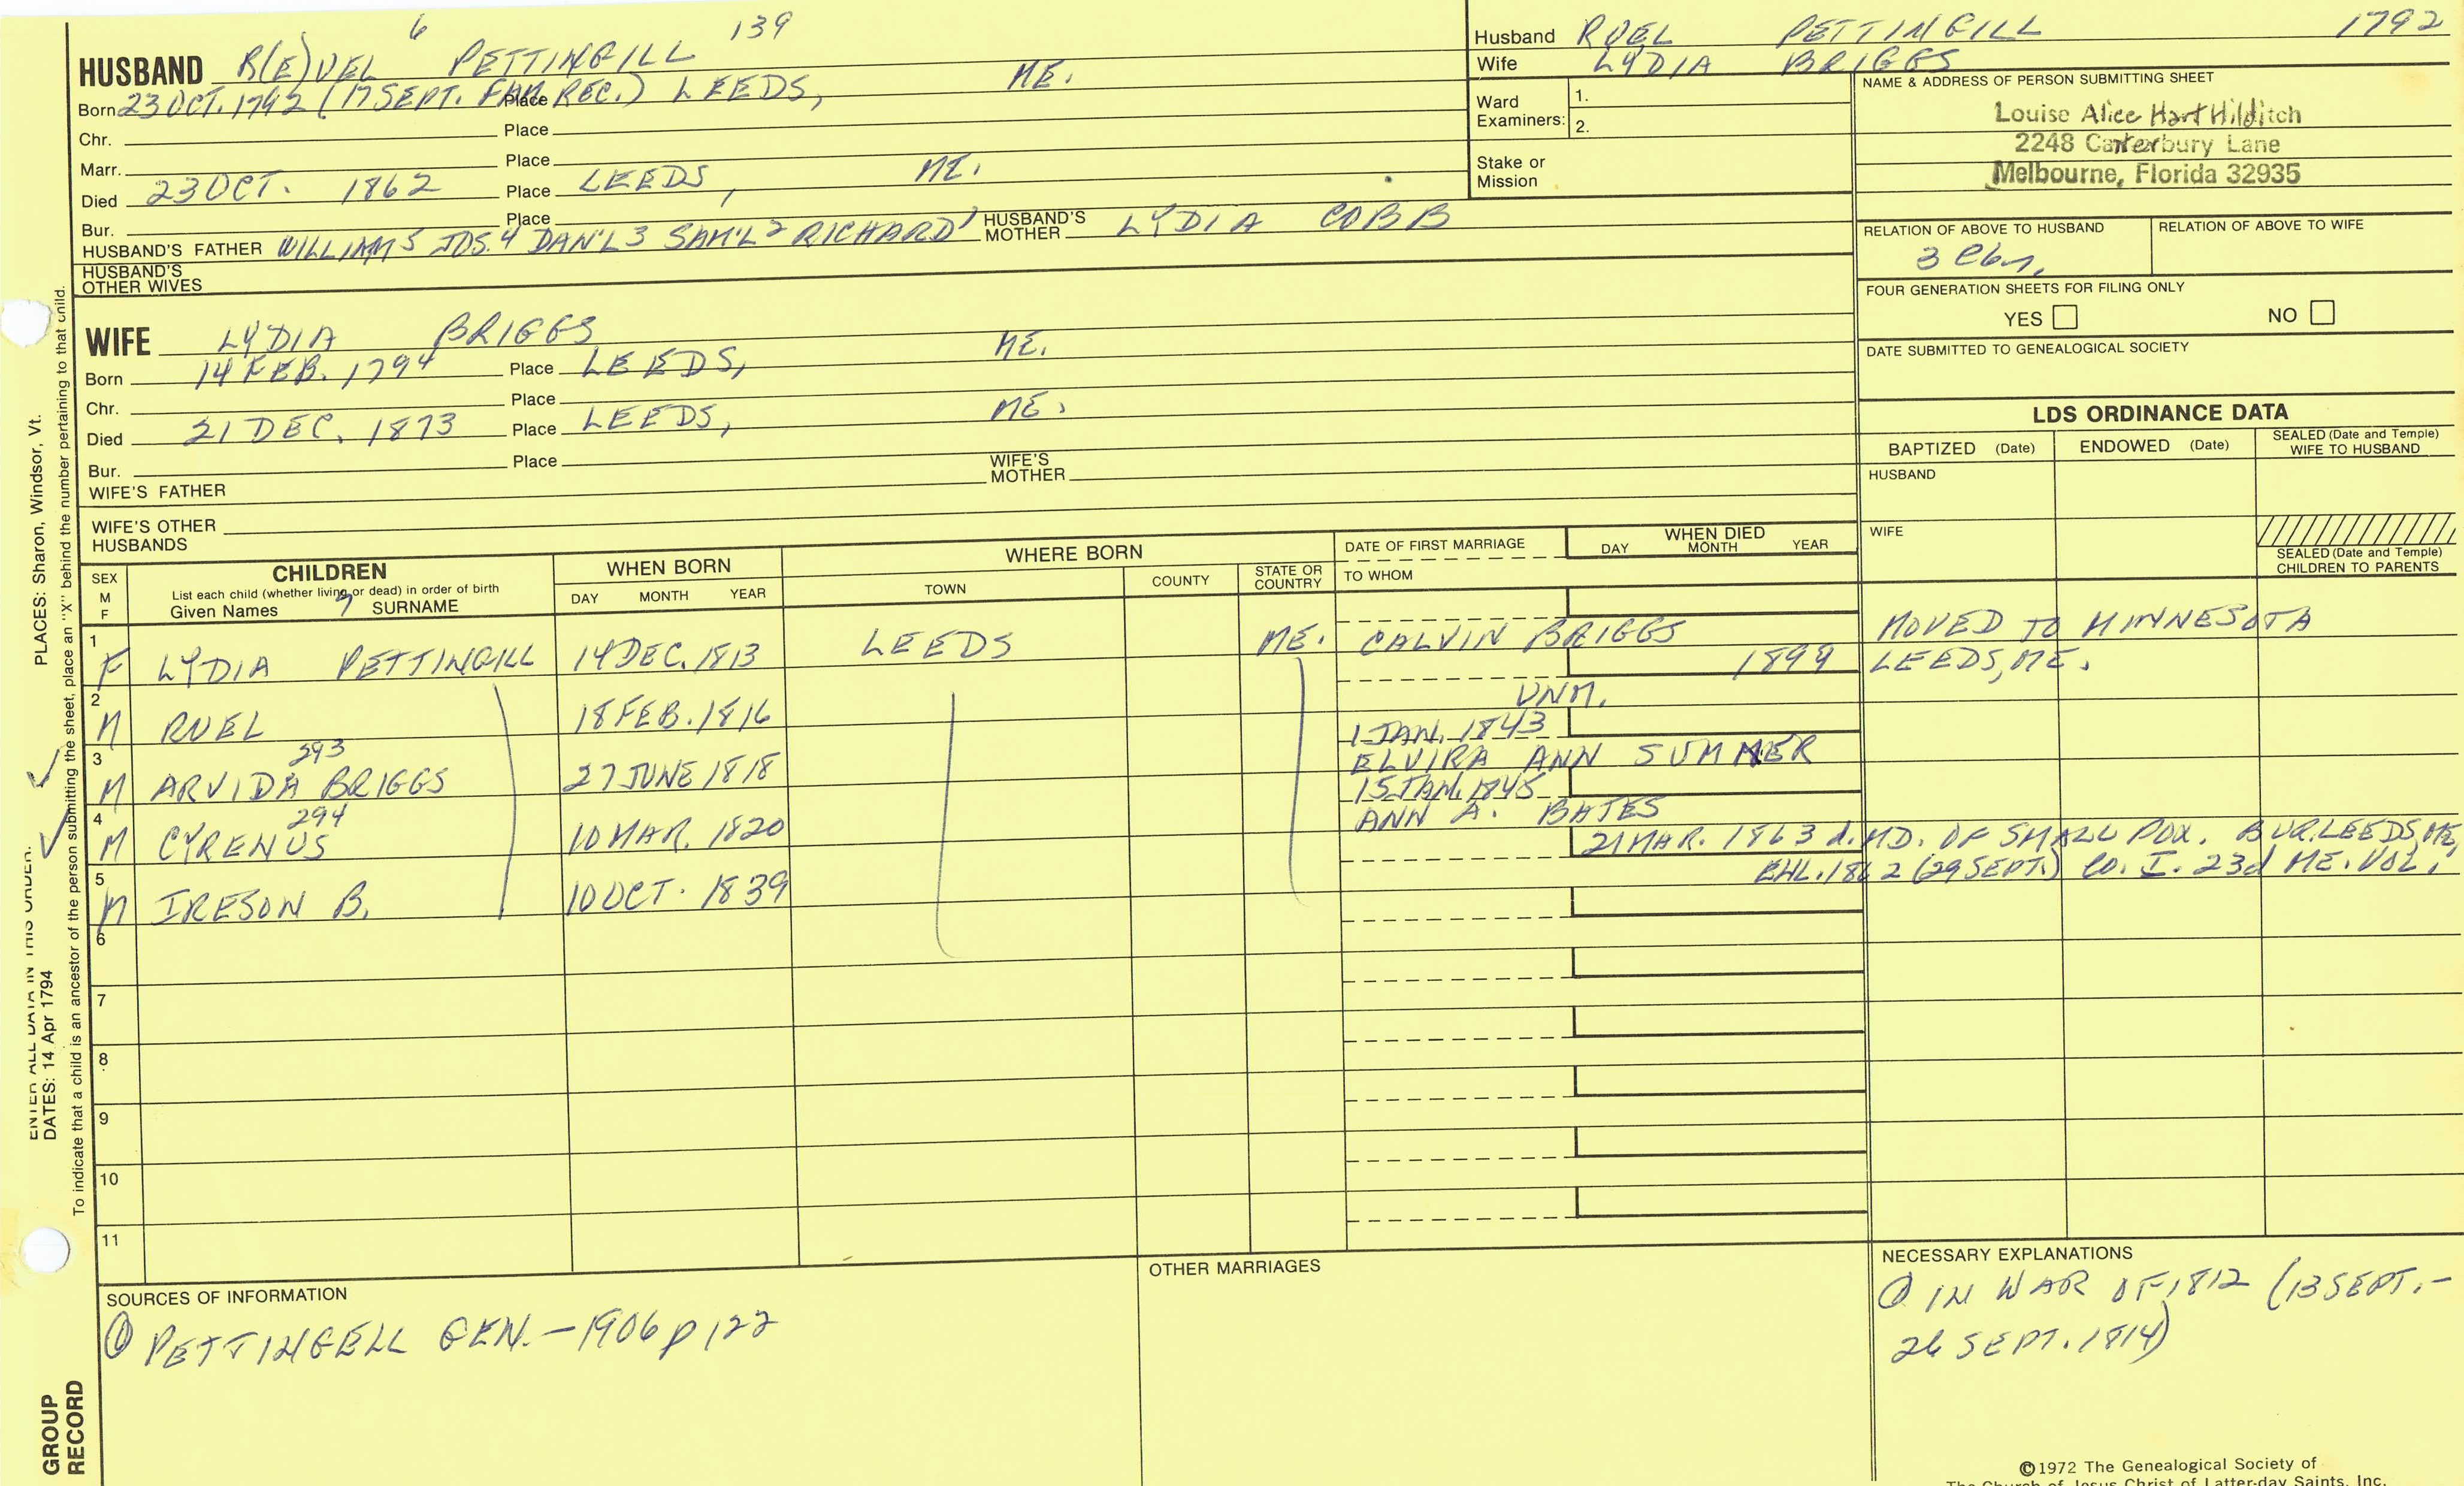 6 139
HUSBAND R(E)UEL PETTINGILL
Born 23 OCT. 1792 (17 SEPT. FAM. REC.) Place LEEDS, ME.
Chr. Place
Marr. Place
Died 23 OCT. 1862 Place LEEDS, ME.
Bur. Place
HUSBAND'S FATHER WILLIAM 5 JOS. 4 DAN'L 3 SAM'L 2 RICHARD 1 HUSBAND'S MOTHER LYDIA COBB
HUSBAND'S OTHER WIVES
WIFE LYDIA BRIGGS
Born 14 FEB. 1794 Place LEEDS, ME.
Chr. Place
Died 21 DEC. 1873 Place LEEDS, ME.
Bur. Place
WIFE'S FATHER WIFE'S MOTHER
WIFE'S OTHER HUSBANDS
Husband RUEL PETTINGILL 1792
Wife LYDIA BRIGGS
Ward Examiners: 1.
2.
Stake or Mission
NAME & ADDRESS OF PERSON SUBMITTING SHEET
Louise Alice Hart Hilditch
2248 Canterbury Lane
Melbourne, Florida 32935
RELATION OF ABOVE TO HUSBAND RELATION OF ABOVE TO WIFE
FOUR GENERATION SHEETS FOR FILING ONLY
YES NO
DATE SUBMITTED TO GENEALOGICAL SOCIETY
LDS ORDINANCE DATA
BAPTIZED (Date) ENDOWED (Date) SEALED (Date and Temple) WIFE TO HUSBAND
HUSBAND
WIFE
SEALED (Date and Temple) CHILDREN TO PARENTS
SEX M F CHILDREN WHEN BORN WHERE BORN DATE OF FIRST MARRIAGE WHEN DIED
List each child (whether living or dead) in order of birth
Given Names 7 SURNAME DAY MONTH YEAR TOWN COUNTY STATE OR COUNTRY TO WHOM DAY MONTH YEAR
1 F LYDIA PETTINGILL 14 DEC. 1813 LEEDS ME. CALVIN BRIGGS MOVED TO MINNESOTA
1899 LEEDS, ME.
2 M RUEL 18 FEB. 1816 UNM.
293 1 JAN. 1843
3 M ARVIDA BRIGGS 27 JUNE 1818 ELVIRA ANN SUMNER
294 15 JAN. 1845
4 M CYRENUS 10 MAR. 1820 ANN A. BATES
21 MAR. 1863 d. MD. OF SMALL POX. BUR. LEEDS, ME,
5 M IRESON B. 10 OCT. 1839 ENL. 1862 (29 SEPT.) CO. I. 23d ME. VOL.
6
7
8
9
10
11
SOURCES OF INFORMATION
① PETTINGELL GEN. - 1906 p 122
OTHER MARRIAGES
NECESSARY EXPLANATIONS
① IN WAR OF 1812 (13 SEPT. -
26 SEPT. 1814)
©1972 The Genealogical Society of
The Church of Jesus Christ of Latter-day Saints, Inc.
PLACES: Sharon, Windsor, Vt.
ENTER ALL DATA IN THIS ORDER:
DATES: 14 Apr 1794
To indicate that a child is an ancestor of the person submitting the sheet, place an "X" behind the number pertaining to that child.
GROUP
RECORD